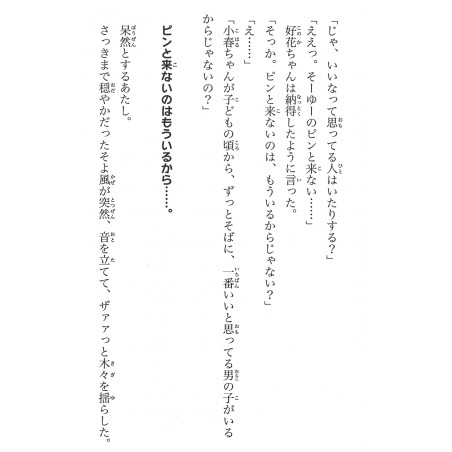 「じゃ、いいなって思ってる人はいたりする？」
「ええっ。そーゆーのピンと来ない……」
好花ちゃんは納得したように言った。
「そっか。ピンと来ないのは、もういるからじゃない？」
「え……」
「小春ちゃんが子どもの頃から、ずっとそばに、一番いいと思ってる男の子がいる
からじゃないの？」
ピンと来ないのはもういるから……。
呆然とするあたし。
さっきまで穏やかだったそよ風が突然、音を立てて、ザァァっと木々を揺らした。